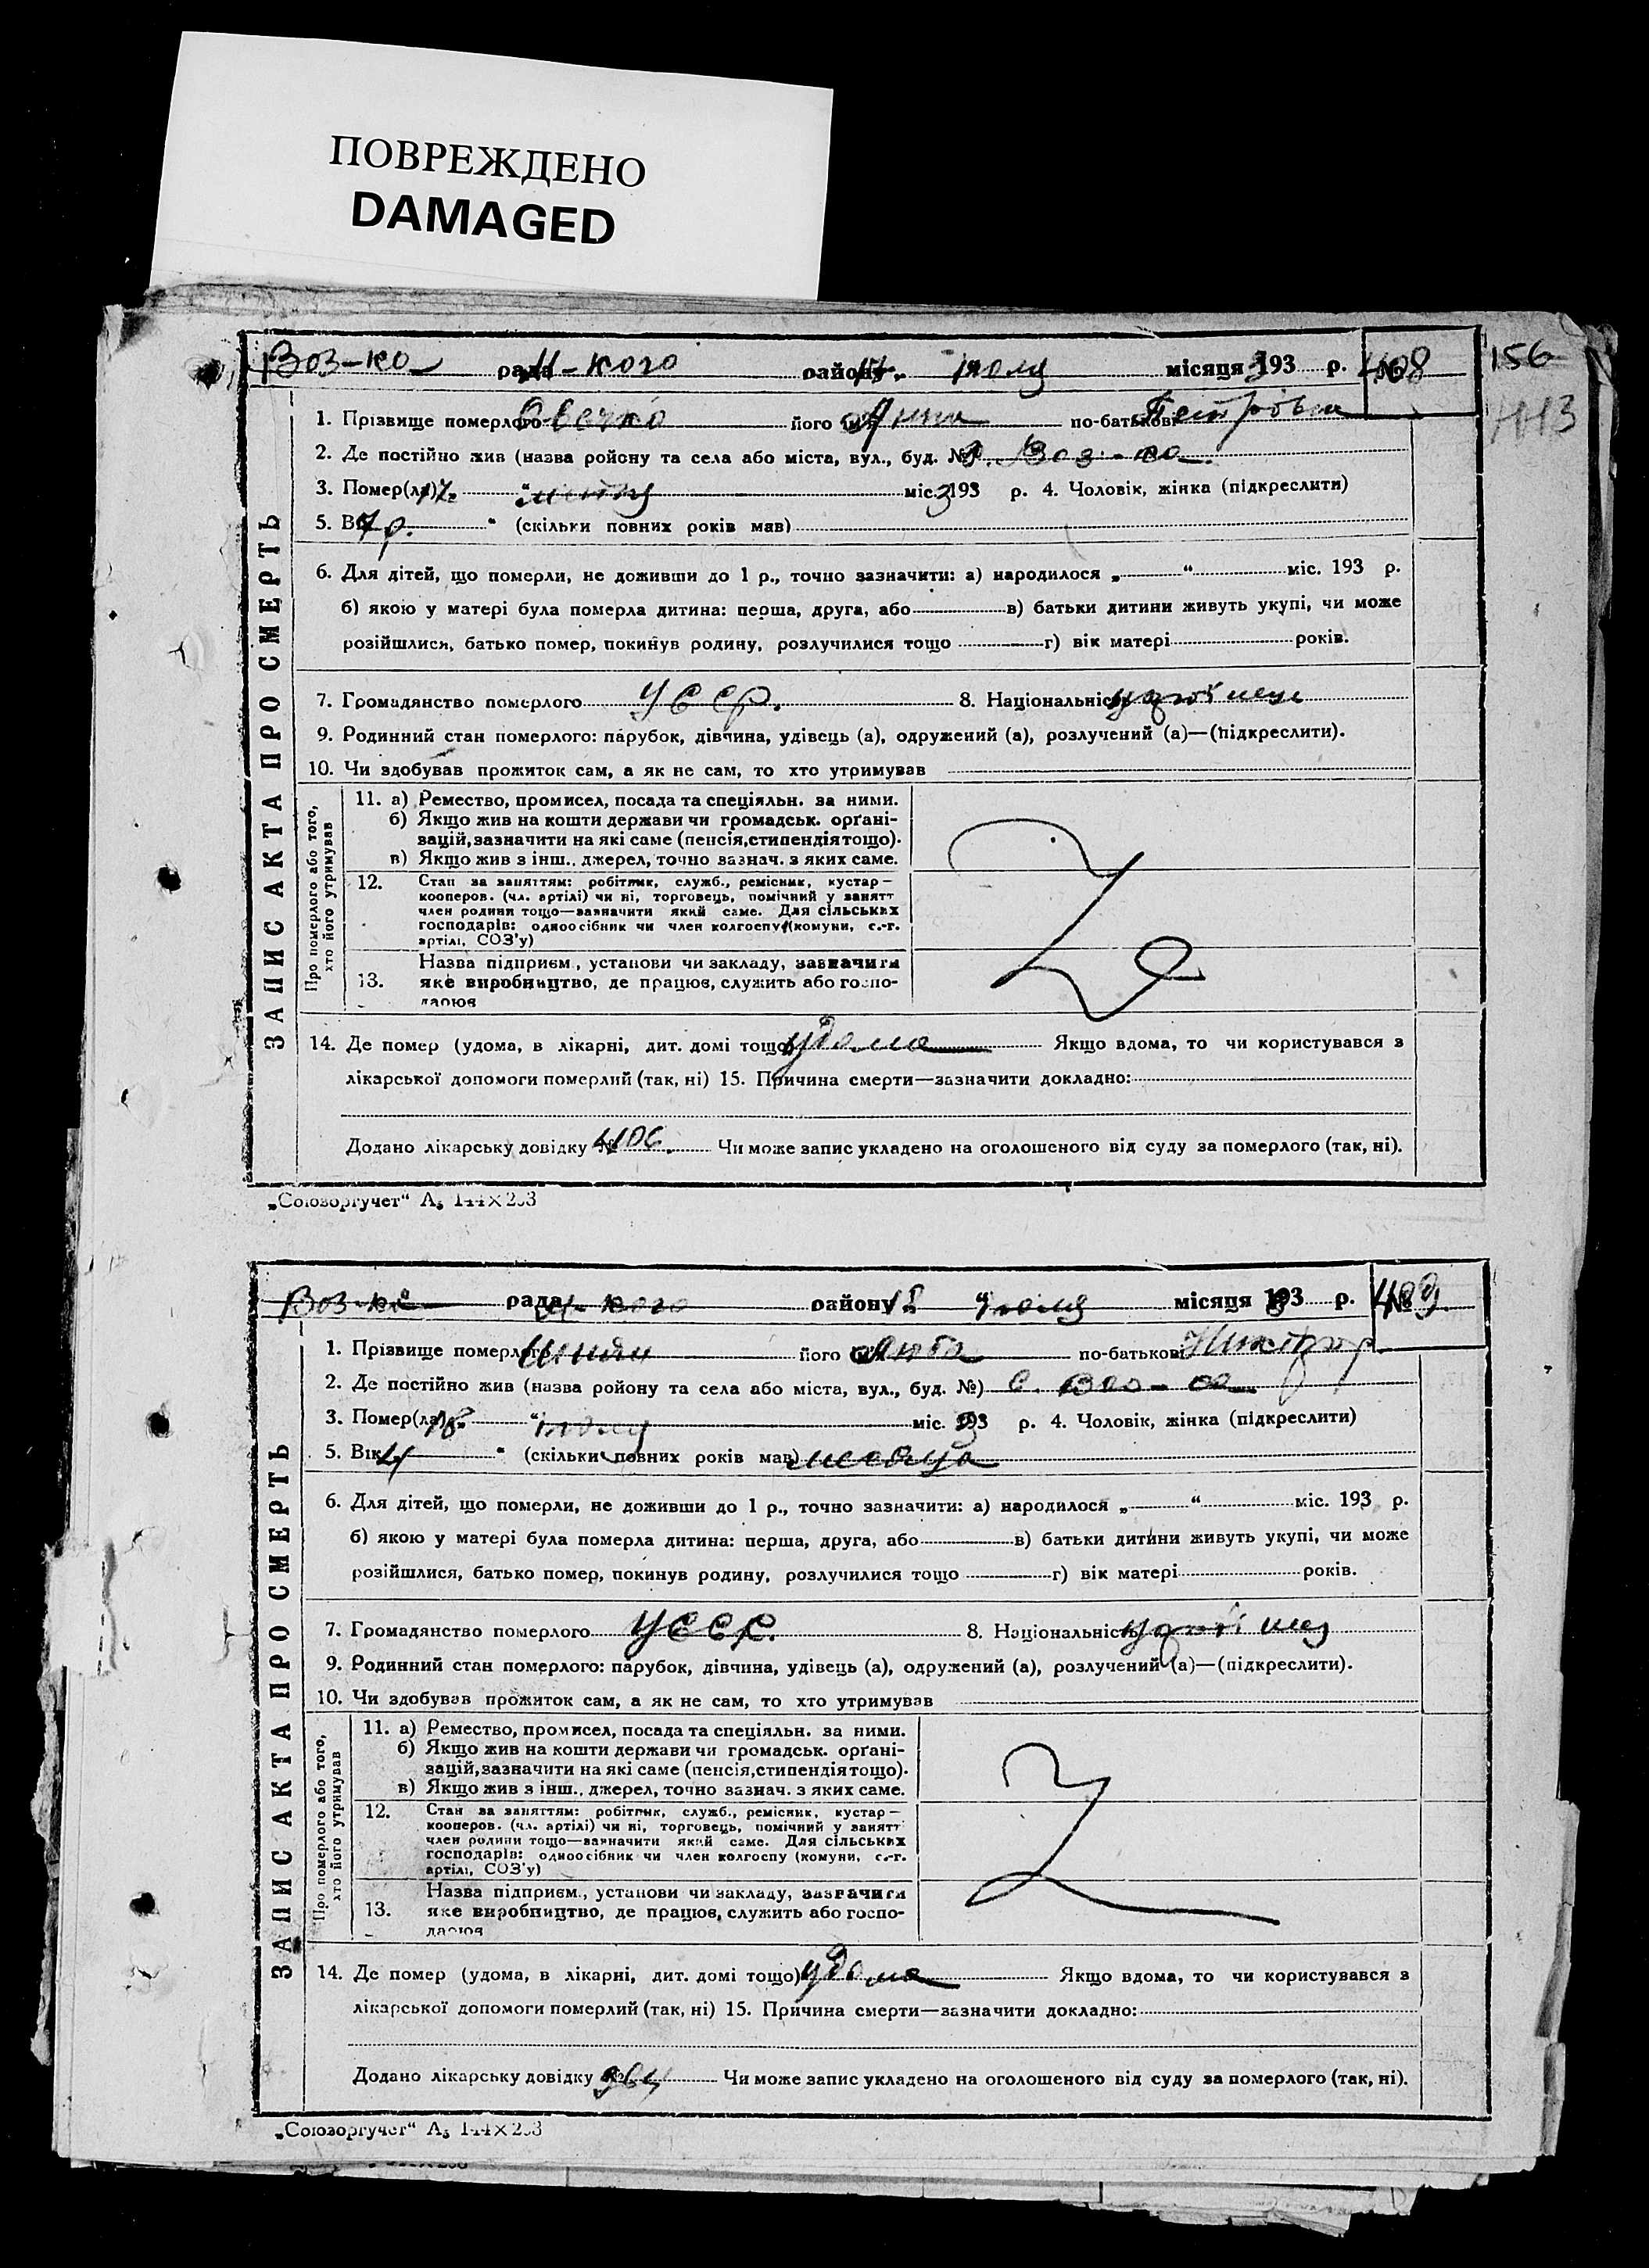 ПОВРЕЖДЕНО
DAMAGED
Воз-ко рада Н-кого району 17. июля місяця 1933 р. № 408
156
1. Прізвище померлого Овечко його ім'я Анна по-батькові Петрівна
2. Де постійно жив (назва ройону та села або міста, вул., буд. №) с. Воз-ка.
3. Помер(ла) 17. міс. 1933 р. 4. Чоловік, жінка (підкреслити)
5. Вік 7 р. " (скільки повних років мав)
6. Для дітей, що померли, не доживши до 1 р., точно зазначити: а) народилося „ “ міс. 193 р.
б) якою у матері була померла дитина: перша, друга, або в) батьки дитини живуть укупі, чи може
розійшлися, батько помер, покинув родину, розлучилися тощо г) вік матері років.
7. Громадянство померлого УССР. 8. Національність
9. Родинний стан померлого: парубок, дівчина, удівець (а), одружений (а), розлучений (а)—(підкреслити).
10. Чи здобував прожиток сам, а як не сам, то хто утримував
ЗАПИС АКТА ПРО СМЕРТЬ
Про померлого або того,
хто його утримував
11. а) Ремество, промисел, посада та спеціяльн. за ними.
б) Якщо жив на кошти держави чи громадськ. орґані-
зацій, зазначити на які саме (пенсія, стипендія тощо).
в) Якщо жив з інш., джерел, точно зазнач. з яких саме.
12. Стан за заняттям: робітник, служб., ремісник, кустар—
кооперов. (чл. артілі) чи ні, торговець, помічний у занятт
член родини тощо—зазначити який саме. Для сільських
господарів: одноосібник чи член колгоспу (комуни, с.-г.
артілі, СОЗ'у)
13. Назва підприєм., установи чи закладу, зазначити
яке виробництво, де працює, служить або госпо-
дарює
14. Де помер (удома, в лікарні, дит. домі тощо) удома Якщо вдома, то чи користувався з
лікарської допомоги померлий (так, ні) 15. Причина смерти—зазначити докладно:
Додано лікарську довідку № Чи може запис укладено на оголошеного від суду за померлого (так, ні).
„Союзоргучет“ А₅ 144×203
Воз-ко рада Н-кого району 18 " июля місяця 1933 р. № 409
1. Прізвище померлого його ім'я Люба по-батькові
2. Де постійно жив (назва ройону та села або міста, вул., буд. №) с.
3. Помер(ла) 18. " июля міс. 1933 р. 4. Чоловік, жінка (підкреслити)
5. Вік 4 " (скільки повних років мав) месяца
6. Для дітей, що померли, не доживши до 1 р., точно зазначити: а) народилося „ “ міс. 193 р.
б) якою у матері була померла дитина: перша, друга, або в) батьки дитини живуть укупі, чи може
розійшлися, батько помер, покинув родину, розлучилися тощо г) вік матері років.
7. Громадянство померлого УССР. 8. Національність
9. Родинний стан померлого: парубок, дівчина, удівець (а), одружений (а), розлучений (а)—(підкреслити).
10. Чи здобував прожиток сам, а як не сам, то хто утримував
ЗАПИС АКТА ПРО СМЕРТЬ
Про померлого або того,
хто його утримував
11. а) Ремество, промисел, посада та спеціяльн. за ними.
б) Якщо жив на кошти держави чи громадськ. орґані-
зацій, зазначити на які саме (пенсія, стипендія тощо).
в) Якщо жив з інш., джерел, точно зазнач. з яких саме.
12. Стан за заняттям: робітник, служб., ремісник, кустар—
кооперов. (чл. артілі) чи ні, торговець, помічний у занятт
член родини тощо—зазначити який саме. Для сільських
господарів: одноосібник чи член колгоспу (комуни, с.-г.
артілі, СОЗ'у)
13. Назва підприєм., установи чи закладу, зазначити
яке виробництво, де працює, служить або госпо-
дарює
14. Де помер (удома, в лікарні, дит. домі тощо) удома Якщо вдома, то чи користувався з
лікарської допомоги померлий (так, ні) 15. Причина смерти—зазначити докладно:
Додано лікарську довідку № Чи може запис укладено на оголошеного від суду за померлого (так, ні).
„Союзоргучет“ А₅ 144×203